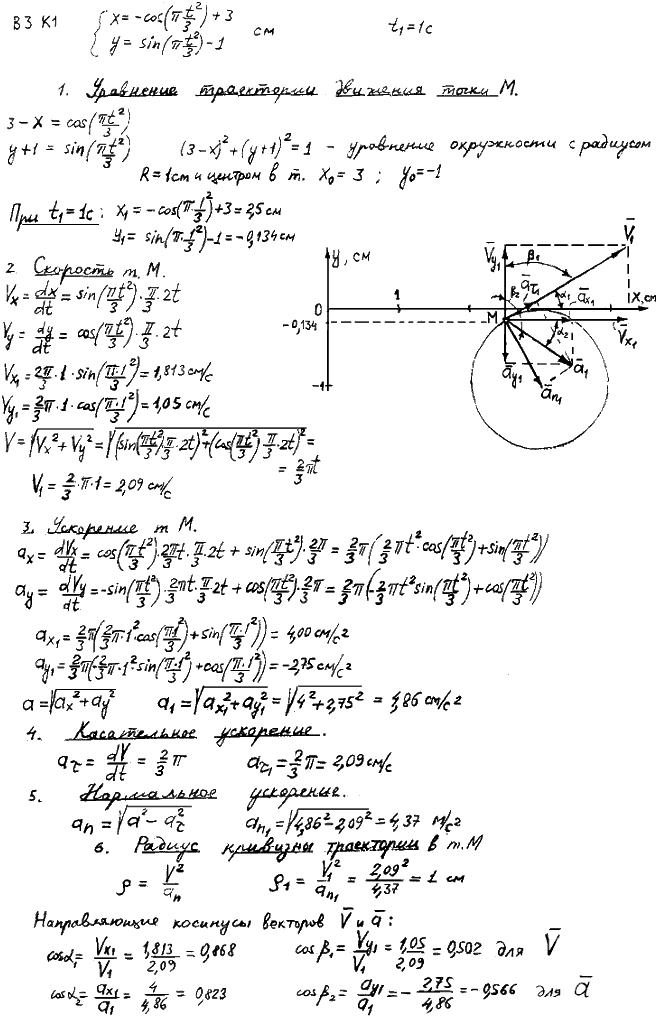 В3 К1 { x = -cos(π t²/3) + 3
y = sin(π t²/3) - 1 см t₁ = 1с
1. Уравнение траектории движения точки М.
3 - x = cos(πt²/3)
y + 1 = sin(πt²/3) (3-x)² + (y+1)² = 1 - уравнение окружности с радиусом
R = 1cm и центром в т. x₀ = 3 ; y₀ = -1
При t₁ = 1с: x₁ = -cos(π·1²/3) + 3 = 2,5 см
y₁ = sin(π·1²/3) - 1 = -0,134 см
2. Скорость т. М.
Vx = dx/dt = sin(πt²/3)·π/3·2t
Vy = dy/dt = cos(πt²/3)·π/3·2t
Vx₁ = 2π/3·1·sin(π·1²/3) = 1,813 см/с
Vy₁ = 2/3π·1·cos(π·1²/3) = 1,05 см/с
V = √(Vx² + Vy²) = √((sin(πt²/3)π/3·2t)² + (cos(πt²/3)·π/3·2t)²) =
= 2/3 πt
V₁ = 2/3·π·1 = 2,09 см/с
y, см
V̄y₁
β₁
V̄₁
āτ₁
β₂
α₁
āx₁
x, см
0
1
М
-0,134
α₂
V̄x₁
āy₁
ā₁
-1
ān₁
3. Ускорение т М.
ax = dVx/dt = cos(πt²/3)·2πt/3·π/3·2t + sin(πt²/3)·2π/3 = 2/3π(2/3πt²·cos(πt²/3) + sin(πt²/3))
ay = dVy/dt = -sin(πt²/3)·2πt/3·π/3·2t + cos(πt²/3)·2π/3 = 2/3π(-2/3πt²sin(πt²/3) + cos(πt²/3))
ax₁ = 2/3π(2/3π·1²cos(π1²/3) + sin(π·1²/3)) = 4,00 см/с²
ay₁ = 2/3π(-2/3π·1²sin(π·1²/3) + cos(π·1²/3)) = -2,75 см/с²
a = √(ax² + ay²) a₁ = √(ax₁² + ay₁²) = √(4² + 2,75²) = 4,86 см/с²
4. Касательное ускорение.
aτ = dV/dt = 2/3 π aτ₁ = 2/3 π = 2,09 см/с
5. Нормальное ускорение.
an = √(a² - aτ²) an₁ = √(4,86² - 2,09²) = 4,37 м/с²
6. Радиус кривизны траектории в т. М
ρ = V²/an ρ₁ = V₁²/an₁ = 2,09²/4,37 = 1 см
Направляющие косинусы векторов V̄ и ā:
cosα₁ = Vx₁/V₁ = 1,813/2,09 = 0,868 cosβ₁ = Vy₁/V₁ = 1,05/2,09 = 0,502 для V̄
cosα₂ = ax₁/a₁ = 4/4,86 = 0,823 cosβ₂ = ay₁/a₁ = -2,75/4,86 = -0,566 для ā